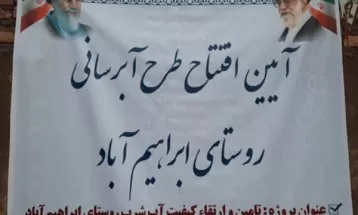 آیین افتتاح طرح آبرسانی
روستای ابراهیم آباد
عنوان پروژه : تامین و ارتقاء کیفیت آب شرب روستای ابراهیم آباد